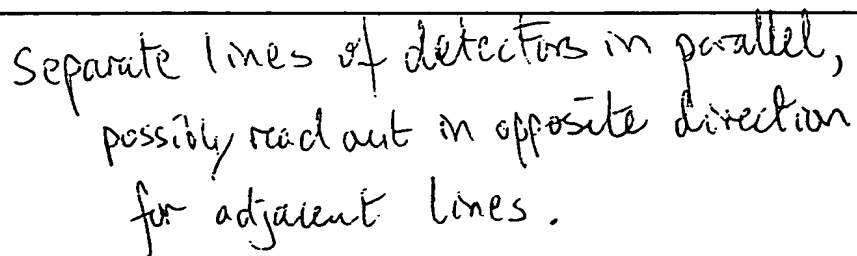 Separate lines of detectors in parallel,
possibly read out in opposite direction
for adjacent lines.